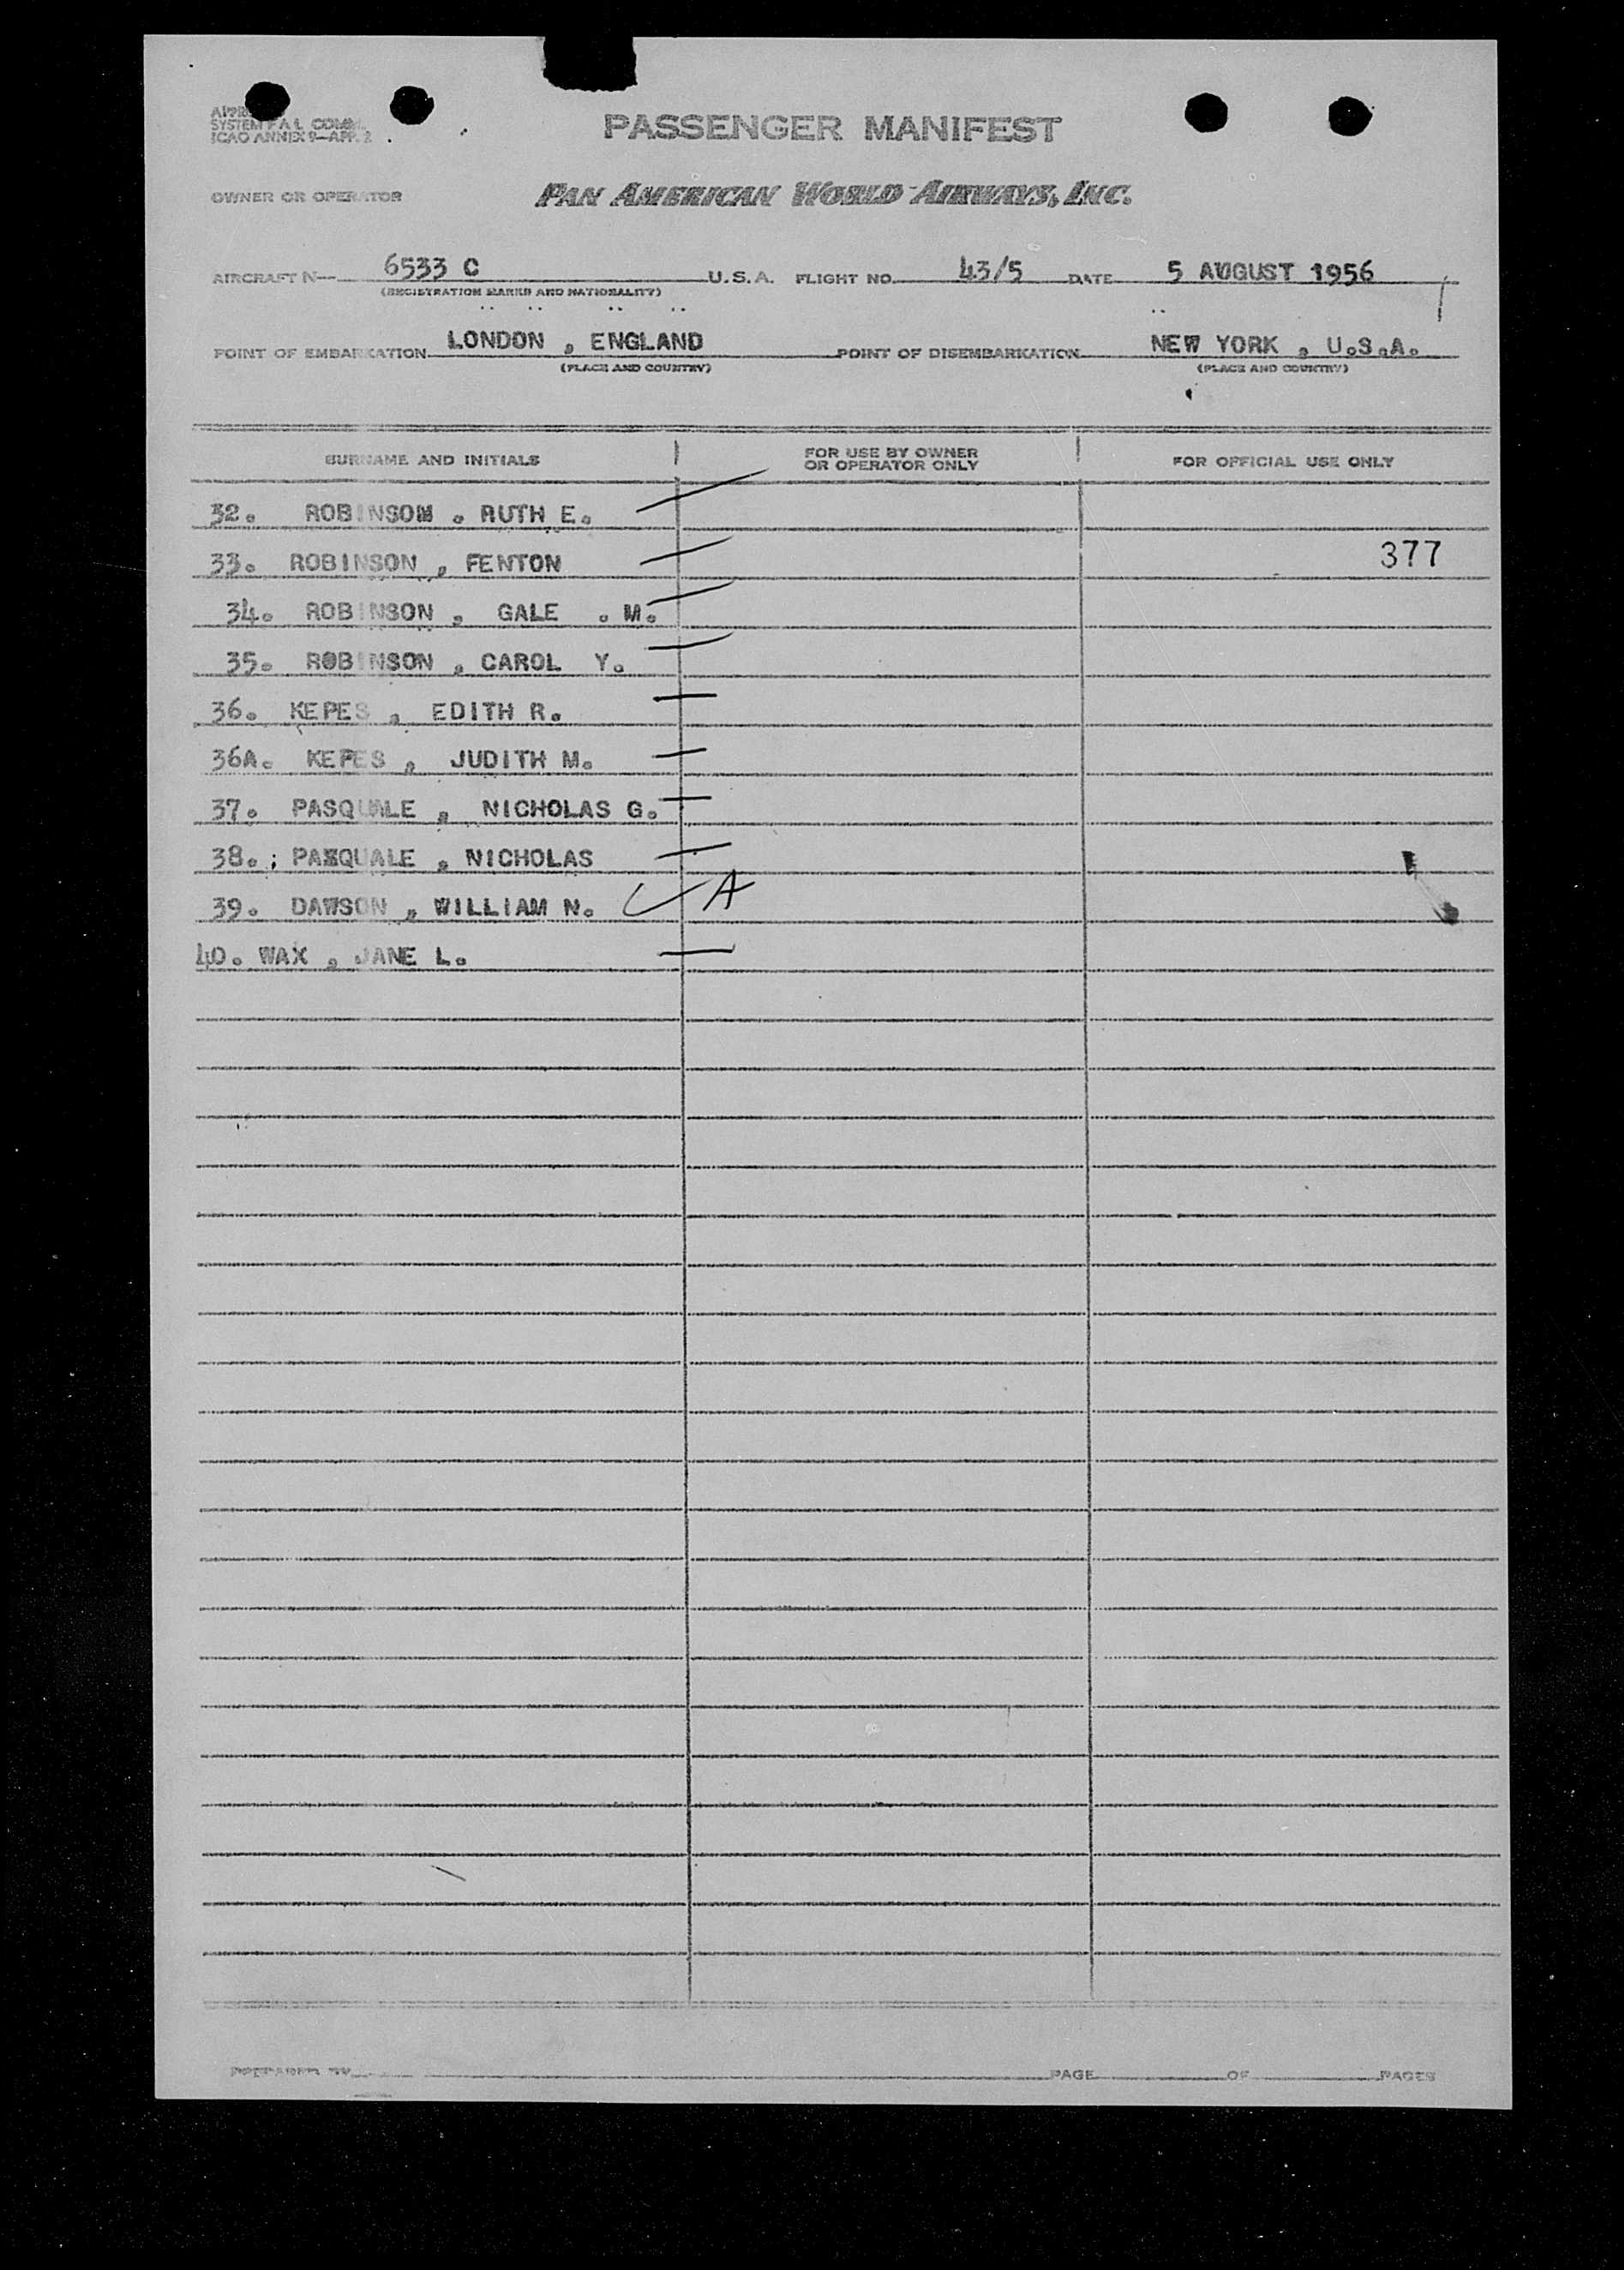 SYSTEM F A L COMM.
ICAO ANNEX 9—APP. 2
PASSENGER MANIFEST
OWNER OR OPERATOR PAN AMERICAN WORLD AIRWAYS, INC.
AIRCRAFT N— 6533 C U.S.A. FLIGHT NO. 43/5 DATE 5 AUGUST 1956
(REGISTRATION MARKS AND NATIONALITY)
POINT OF EMBARKATION LONDON , ENGLAND POINT OF DISEMBARKATION NEW YORK , U.S.A.
(PLACE AND COUNTRY) (PLACE AND COUNTRY)
SURNAME AND INITIALS FOR USE BY OWNER OR OPERATOR ONLY FOR OFFICIAL USE ONLY
32. ROBINSOM . RUTH E.
33. ROBINSON , FENTON 377
34. ROBINSON , GALE . M.
35. ROBINSON , CAROL Y.
36. KEPES , EDITH R.
36A. KEPES , JUDITH M.
37. PASQUALE , NICHOLAS G.
38. ; PASQUALE , NICHOLAS
39. DAWSON , WILLIAM N. A
40. WAX , JANE L.
PREPARED BY PAGE OF PAGES